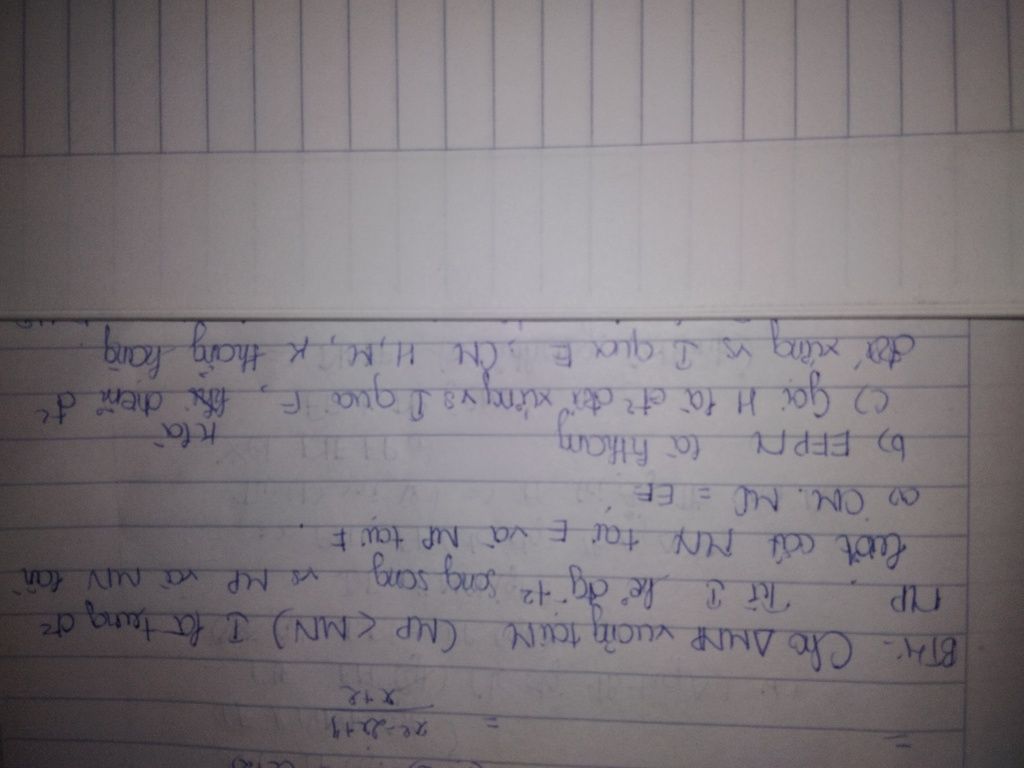 =
= x²-2x+4
x+2
BT4: Cho ΔMNP vuông tại M (MP < MN) I là trung đ²
NP. Từ I kẻ đg t² song song vs MP và MN lần
lượt cắt MN tại E và MP tại F.
a) CM. MI = EF
b) EFPN là hthang
c) Gọi H là đ² đối xứng vs I qua F, K là điểm đ²
đối xứng vs I qua E, CM H, M, K thẳng hàng